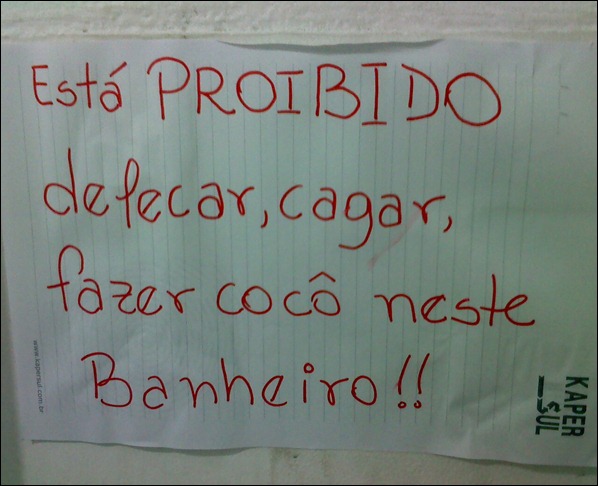 Está PROIBIDO
defecar, cagar,
fazer cocô neste
Banheiro!!
KAPER
SUL
www.kapersul.com.br